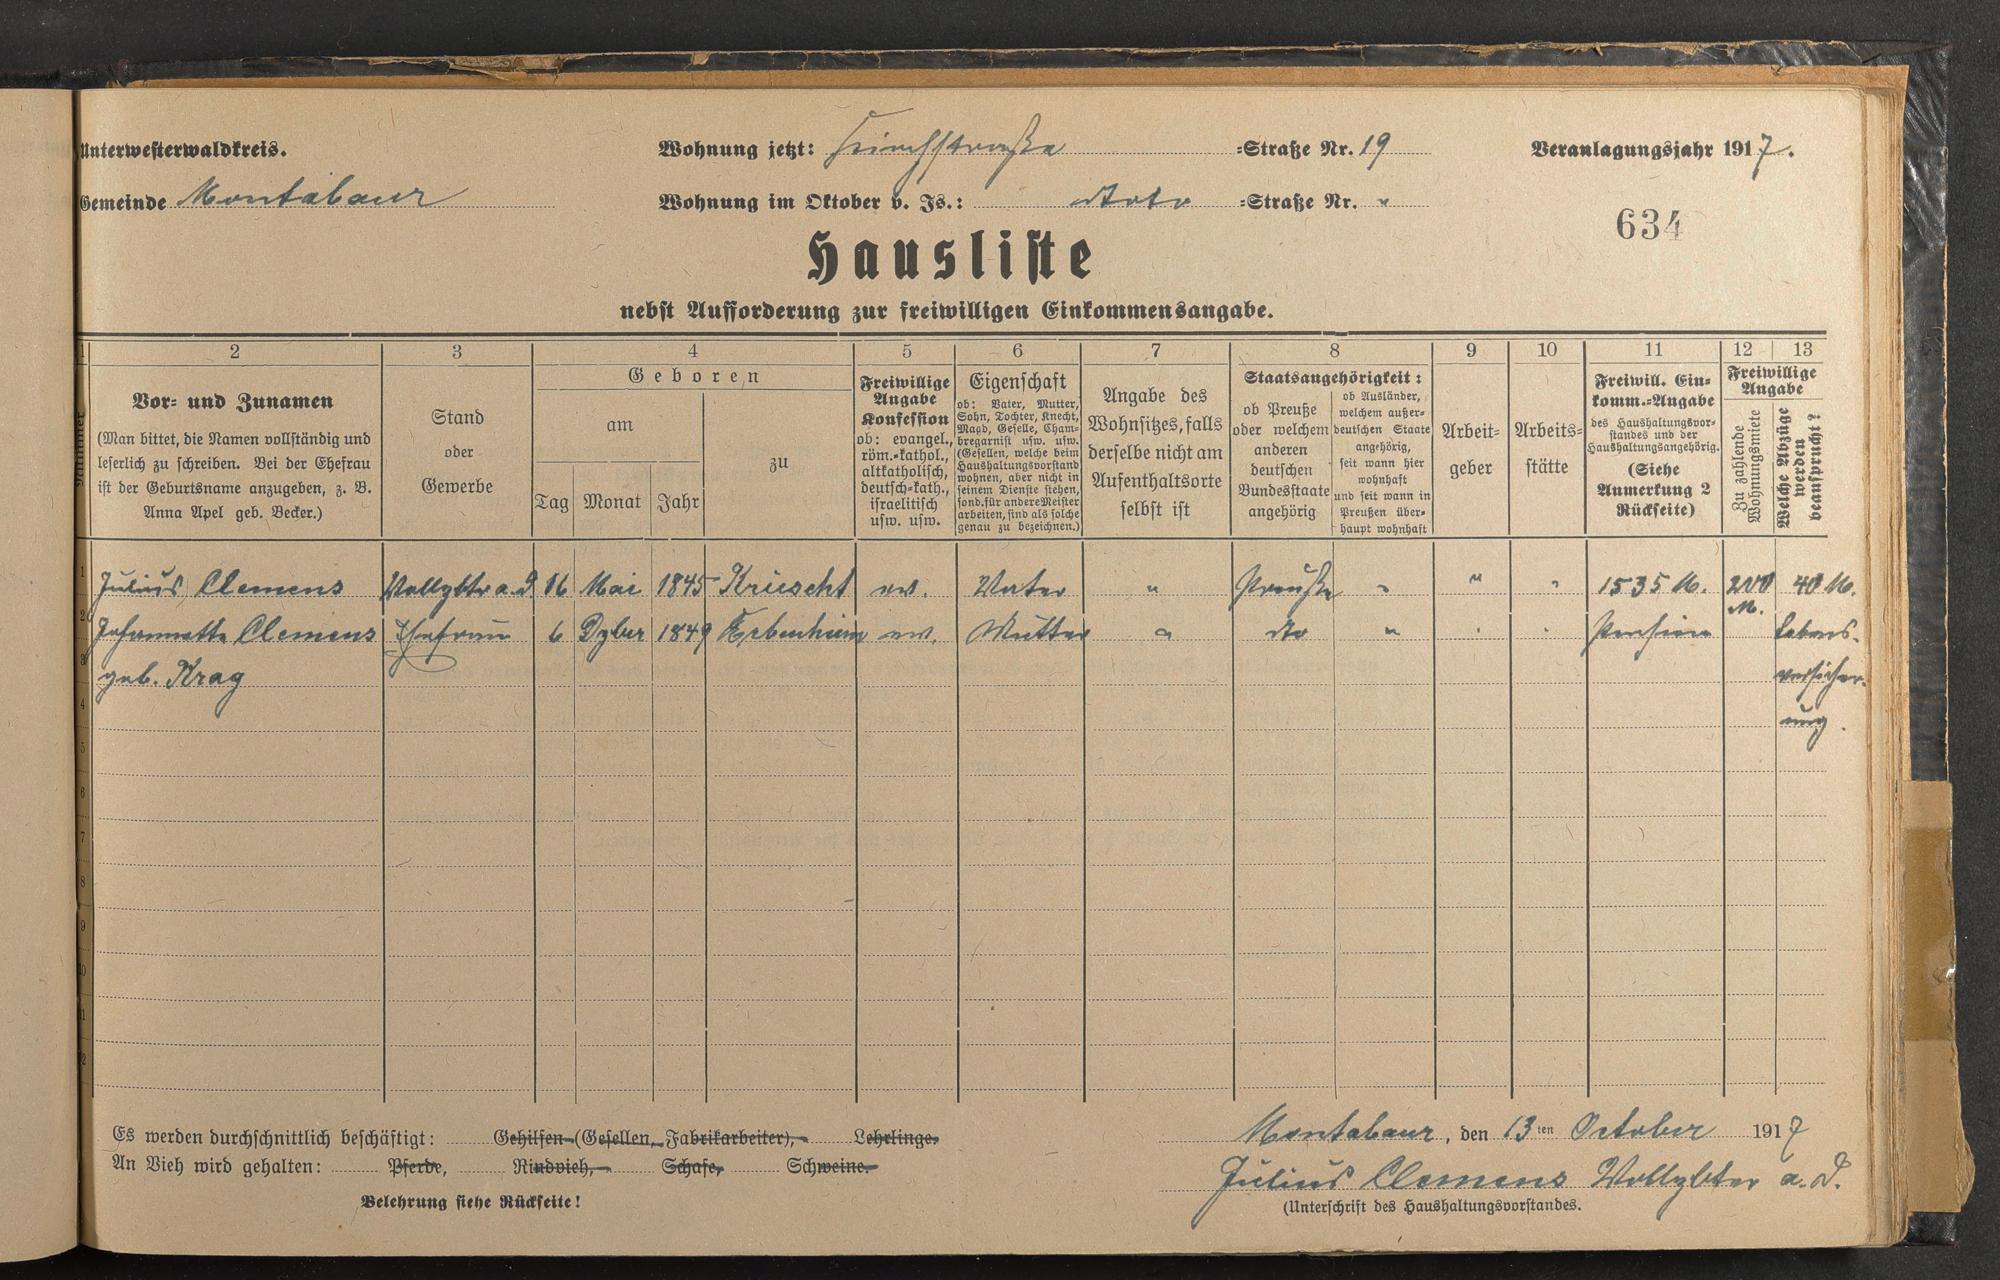 Unterwesterwaldkreis.
Wohnung jetzt: Kirchstraße =Straße Nr. 19
Veranlagungsjahr 1917.
Gemeinde Montabaur
Wohnung im Oktober v. Js.: dto =Straße Nr. "
634
Hausliste
nebst Aufforderung zur freiwilligen Einkommensangabe.
1 2 3 4 5 6 7 8 9 10 11 12 13
Nummer
Vor- und Zunamen
(Man bittet, die Namen vollständig und
leserlich zu schreiben. Bei der Ehefrau
ist der Geburtsname anzugeben, z. B.
Anna Apel geb. Becker.)
Stand
oder
Gewerbe
Geboren
am
Tag Monat Jahr
zu
Freiwillige
Angabe
Konfession
ob: evangel.,
röm.-kathol.,
altkatholisch,
deutsch-kath.,
israelitisch
usw. usw.
Eigenschaft
ob: Vater, Mutter,
Sohn, Tochter, Knecht,
Magd, Geselle, Cham-
bregarnist usw. usw.
(Gesellen, welche beim
Haushaltungsvorstand
wohnen, aber nicht in
seinem Dienste stehen,
sond. für andere Meister
arbeiten, sind als solche
genau zu bezeichnen.)
Angabe des
Wohnsitzes, falls
derselbe nicht am
Aufenthaltsorte
selbst ist
Staatsangehörigkeit:
ob Preuße
oder welchem
anderen
deutschen
Bundesstaate
angehörig
ob Ausländer,
welchem außer-
deutschen Staate
angehörig,
seit wann hier
wohnhaft
und seit wann in
Preußen über-
haupt wohnhaft
Arbeit-
geber
Arbeits-
stätte
Freiwill. Ein-
komm.-Angabe
des Haushaltungsvor-
standes und der
Haushaltungsangehörig.
(Siehe
Anmerkung 2
Rückseite)
Freiwillige
Angabe
Zu zahlende
Wohnungsmiete
Welche Abzüge
werden
beansprucht?
1 Julius Clemens Vollzbtr a. D. 16 Mai 1845 Kriescht ev. Vater " Preuße " " " 1535 M. 200 M. 40 M.
2 Johannette Clemens Ehefrau 6 Dzber 1849 Erbenheim ev. Mutter " dto " " " Pension Lebens-
3 geb. Krag versicher-
4 ung.
5
6
7
8
9
10
11
12
Es werden durchschnittlich beschäftigt: Gehilfen (Gesellen, Fabrikarbeiter), Lehrlinge.
An Vieh wird gehalten: Pferde, Rindvieh, Schafe, Schweine.
Belehrung siehe Rückseite!
Montabaur, den 13ten October 1917
Julius Clemens Vollzbter a. D.
(Unterschrift des Haushaltungsvorstandes.